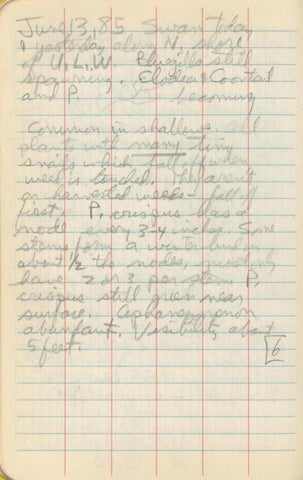 June 13, 85 Swan today
& yesterday along N. shore
of U.L.W. Bluegills still
spawning. Elodea & Coontail
and P. becoming
common in shallows. All
plants with many tiny
snails which fall off when
weed is touched. They aren't
on harvested weeds - fall off
first. P. crispus has a
node every 3-4 inches. Some
stems form a winter bud on
about 1/2 the nodes, most only
have 2 or 3 per stem. P.
crispus still green near
surface. Aphanizomenon
abundant. Visibility about
5 feet.
6